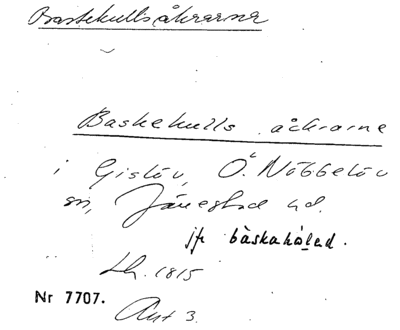 Baskekullsåkrarna
Baskekulls åckrarne
i Gislöv, Ö. Nöbbelöv
sn, Järrestad hd.
jfr båskahålad.
Lh. 1815
Nr 7707.
Akt 3.